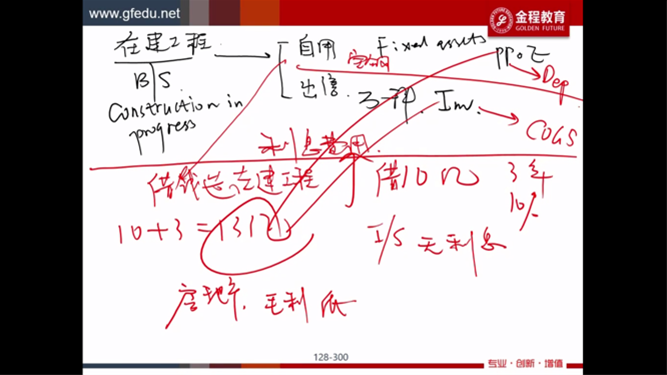 www.gfedu.net
金程教育
GOLDEN FUTURE
在建工程 自用 Fixed assets PP&E
B/S Dep
出售 Inv.
Construction in COGS
progress
利息费用
借钱造在建工程 借10亿 3年
10%
10+3=13亿
I/S 无利息
房地产. 毛利低
128-300
专业·创新·增值